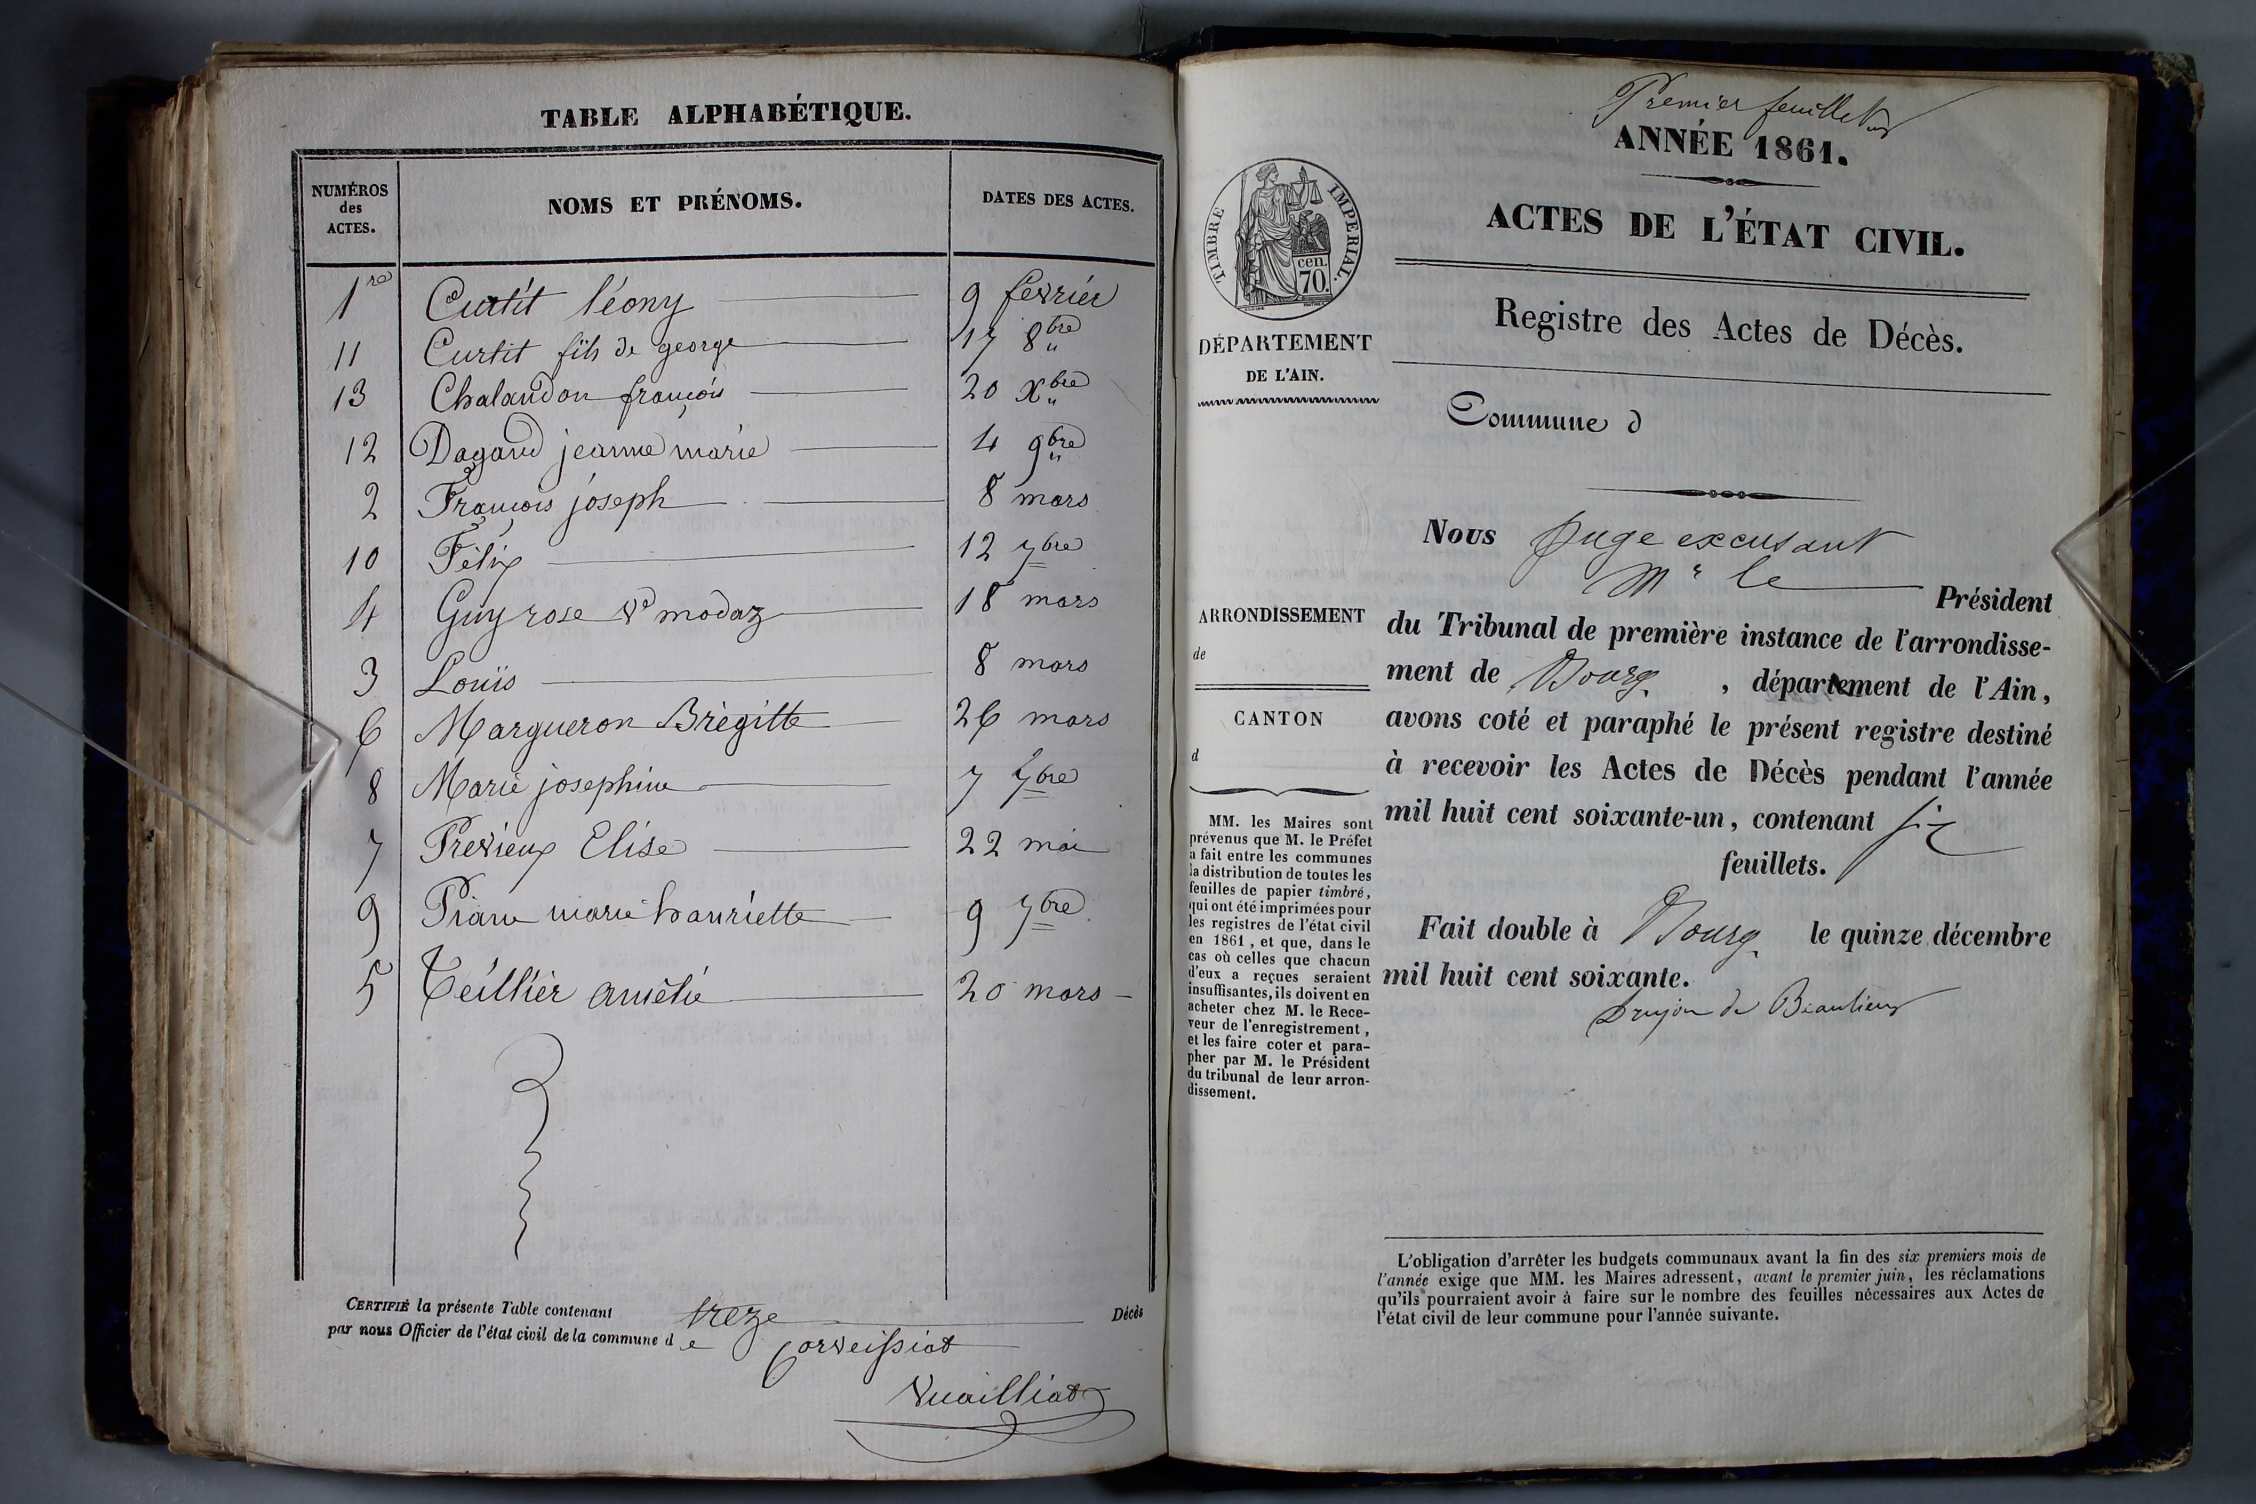 TABLE ALPHABÉTIQUE.
NUMÉROS des ACTES. NOMS ET PRÉNOMS. DATES DES ACTES.
1re Curtit léony 9 fevrier
11 Curtit fils de george 17 8bre
13 Chalandon françois 20 Xbre
12 Dagand jeanne marie 4 9bre
2 François joseph 8 mars
10 Félix 12 7bre
4 Guy rose Ve modaz 18 mars
3 Louis 8 mars
6 Margueron Brégitte 26 mars
8 Marie josephine 7 7bre
7 Previeux Elise 22 mai
9 marie hanriette 9 7bre
5 Teillier amélie 20 mars
CERTIFIÉ la présente Table contenant treze Décès
par nous Officier de l'état civil de la commune de Corveissiat
Vuailliat
Premier feuillet
ANNÉE 1861.
ACTES DE L'ÉTAT CIVIL.
TIMBRE IMPERIAL.
cen.
70.
Registre des Actes de Décès.
DÉPARTEMENT
DE L'AIN.
Commune d
Nous Juge excusant
Mr le Président
du Tribunal de première instance de l'arrondisse-
ment de Bourg, département de l'Ain,
avons coté et paraphé le présent registre destiné
à recevoir les Actes de Décès pendant l'année
mil huit cent soixante-un, contenant six
feuillets.
Fait double à Bourg le quinze décembre
mil huit cent soixante.
Drujon de Beaulieu
ARRONDISSEMENT
de
CANTON
d
MM. les Maires sont
prévenus que M. le Préfet
a fait entre les communes
la distribution de toutes les
feuilles de papier timbré,
qui ont été imprimées pour
les registres de l'état civil
en 1861, et que, dans le
cas où celles que chacun
d'eux a reçues seraient
insuffisantes, ils doivent en
acheter chez M. le Rece-
veur de l'enregistrement,
et les faire coter et para-
pher par M. le Président
du tribunal de leur arron-
dissement.
L'obligation d'arrêter les budgets communaux avant la fin des six premiers mois de
l'année exige que MM. les Maires adressent, avant le premier juin, les réclamations
qu'ils pourraient avoir à faire sur le nombre des feuilles nécessaires aux Actes de
l'état civil de leur commune pour l'année suivante.